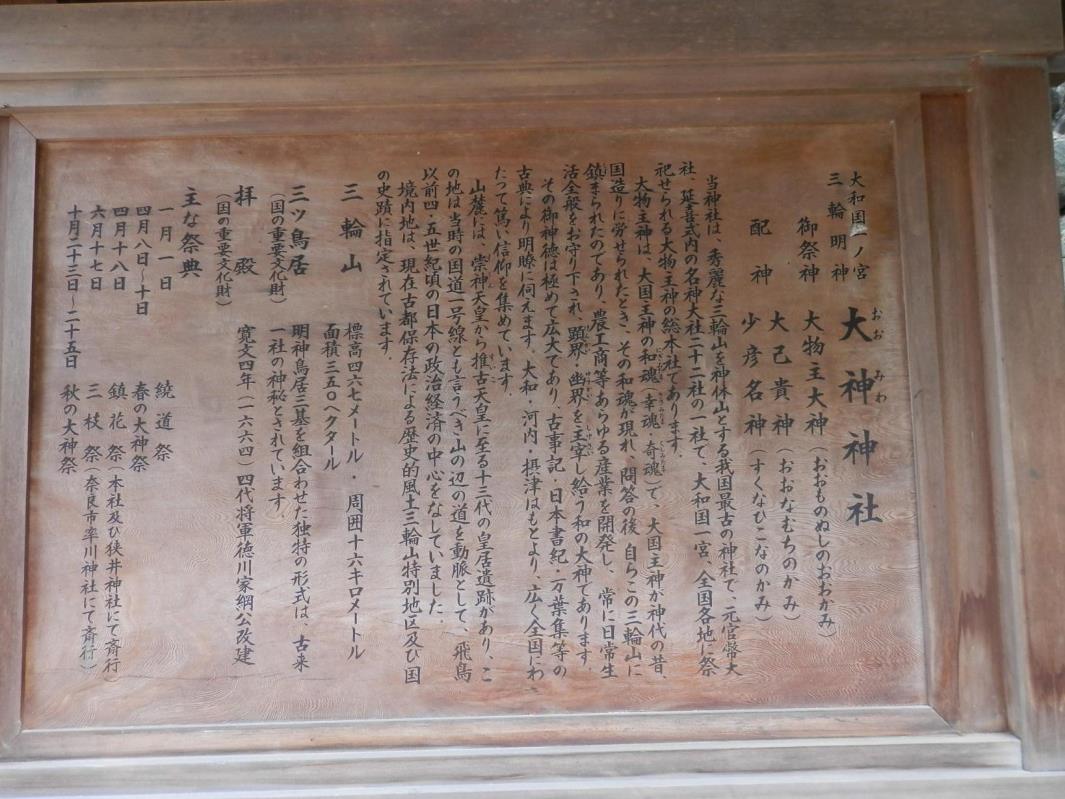 大和国一ノ宮
三輪明神
大神神社
おおみわ
御祭神 大物主大神(おおものぬしのおおかみ)
大己貴神(おおなむちのかみ)
配神 少彦名神(すくなひこなのかみ)
当神社は、秀麗な三輪山を神体山とする我国最古の神社で、元官幣大
社、延喜式内の名神大社二十二社の一社で、大和国一宮、全国各地に祭
祀せられる大物主神の総本社であります。
大物主神は、大国主神の和魂(幸魂・奇魂)で、大国主神が神代の昔、
国造りに労せられたとき、その和魂が現れ、問答の後、自らこの三輪山に
鎮まられたのであり、農工商等あらゆる産業を開発し、常に日常生
活全般をお守り下され、顕界・幽界を主宰し給う和の大神であります。
その御神徳は極めて広大であり、古事記・日本書紀・万葉集等の
古典により明瞭に伺えます。大和・河内・摂津はもとより、広く全国にわ
たって篤い信仰を集めています。
山麓には、崇神天皇から推古天皇に至る十三代の皇居遺跡があり、こ
の地は当時の国道一号線とも言うべき山の辺の道を動脈として、飛鳥
以前四・五世紀頃の日本の政治経済の中心をなしていました。
境内地は、現在古都保存法による歴史的風土三輪山特別地区及び国
の史蹟に指定されています。
三輪山 標高四六七メートル・周囲十六キロメートル
面積三五〇ヘクタール
三ツ鳥居 明神鳥居三基を組合わせた独特の形式は、古来
(国の重要文化財) 一社の神秘とされています。
拝殿 寛文四年(一六六四)四代将軍徳川家綱公改建
(国の重要文化財)
主な祭典
一月一日 繞道祭
四月八日~十日 春の大神祭
四月十八日 鎮花祭(本社及び狭井神社にて斎行)
六月十七日 三枝祭(奈良市率川神社にて斎行)
十月二十三日~二十五日 秋の大神祭